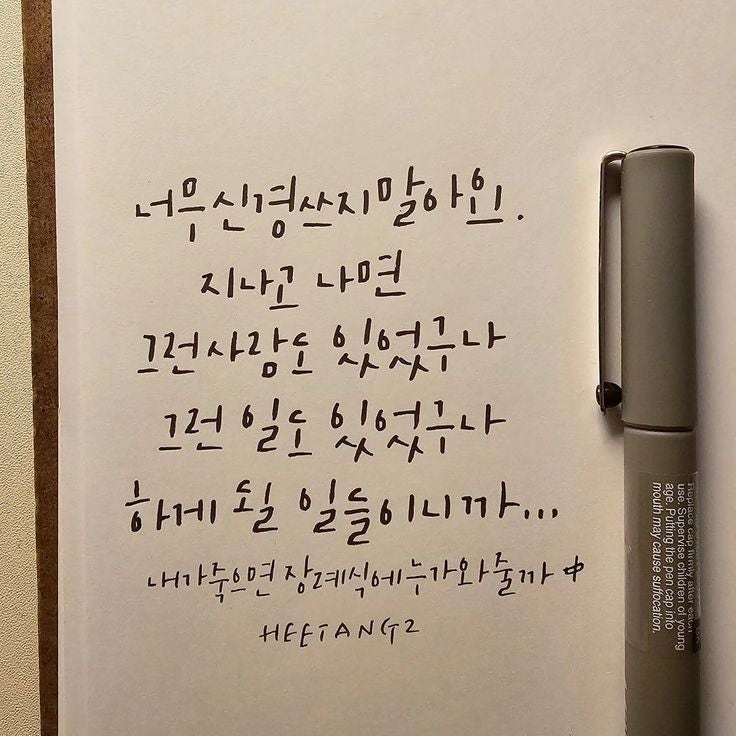 너무 신경쓰지 말아요.
지나고 나면
그런 사람도 있었구나
그런 일도 있었구나
하게 될 일들이니까...
내가 죽으면 장례식에 누가 와줄까 中
HEETANG2
Replace cap firmly after each
use. Supervise children of young
age. Putting the pen cap into
mouth may cause suffocation.